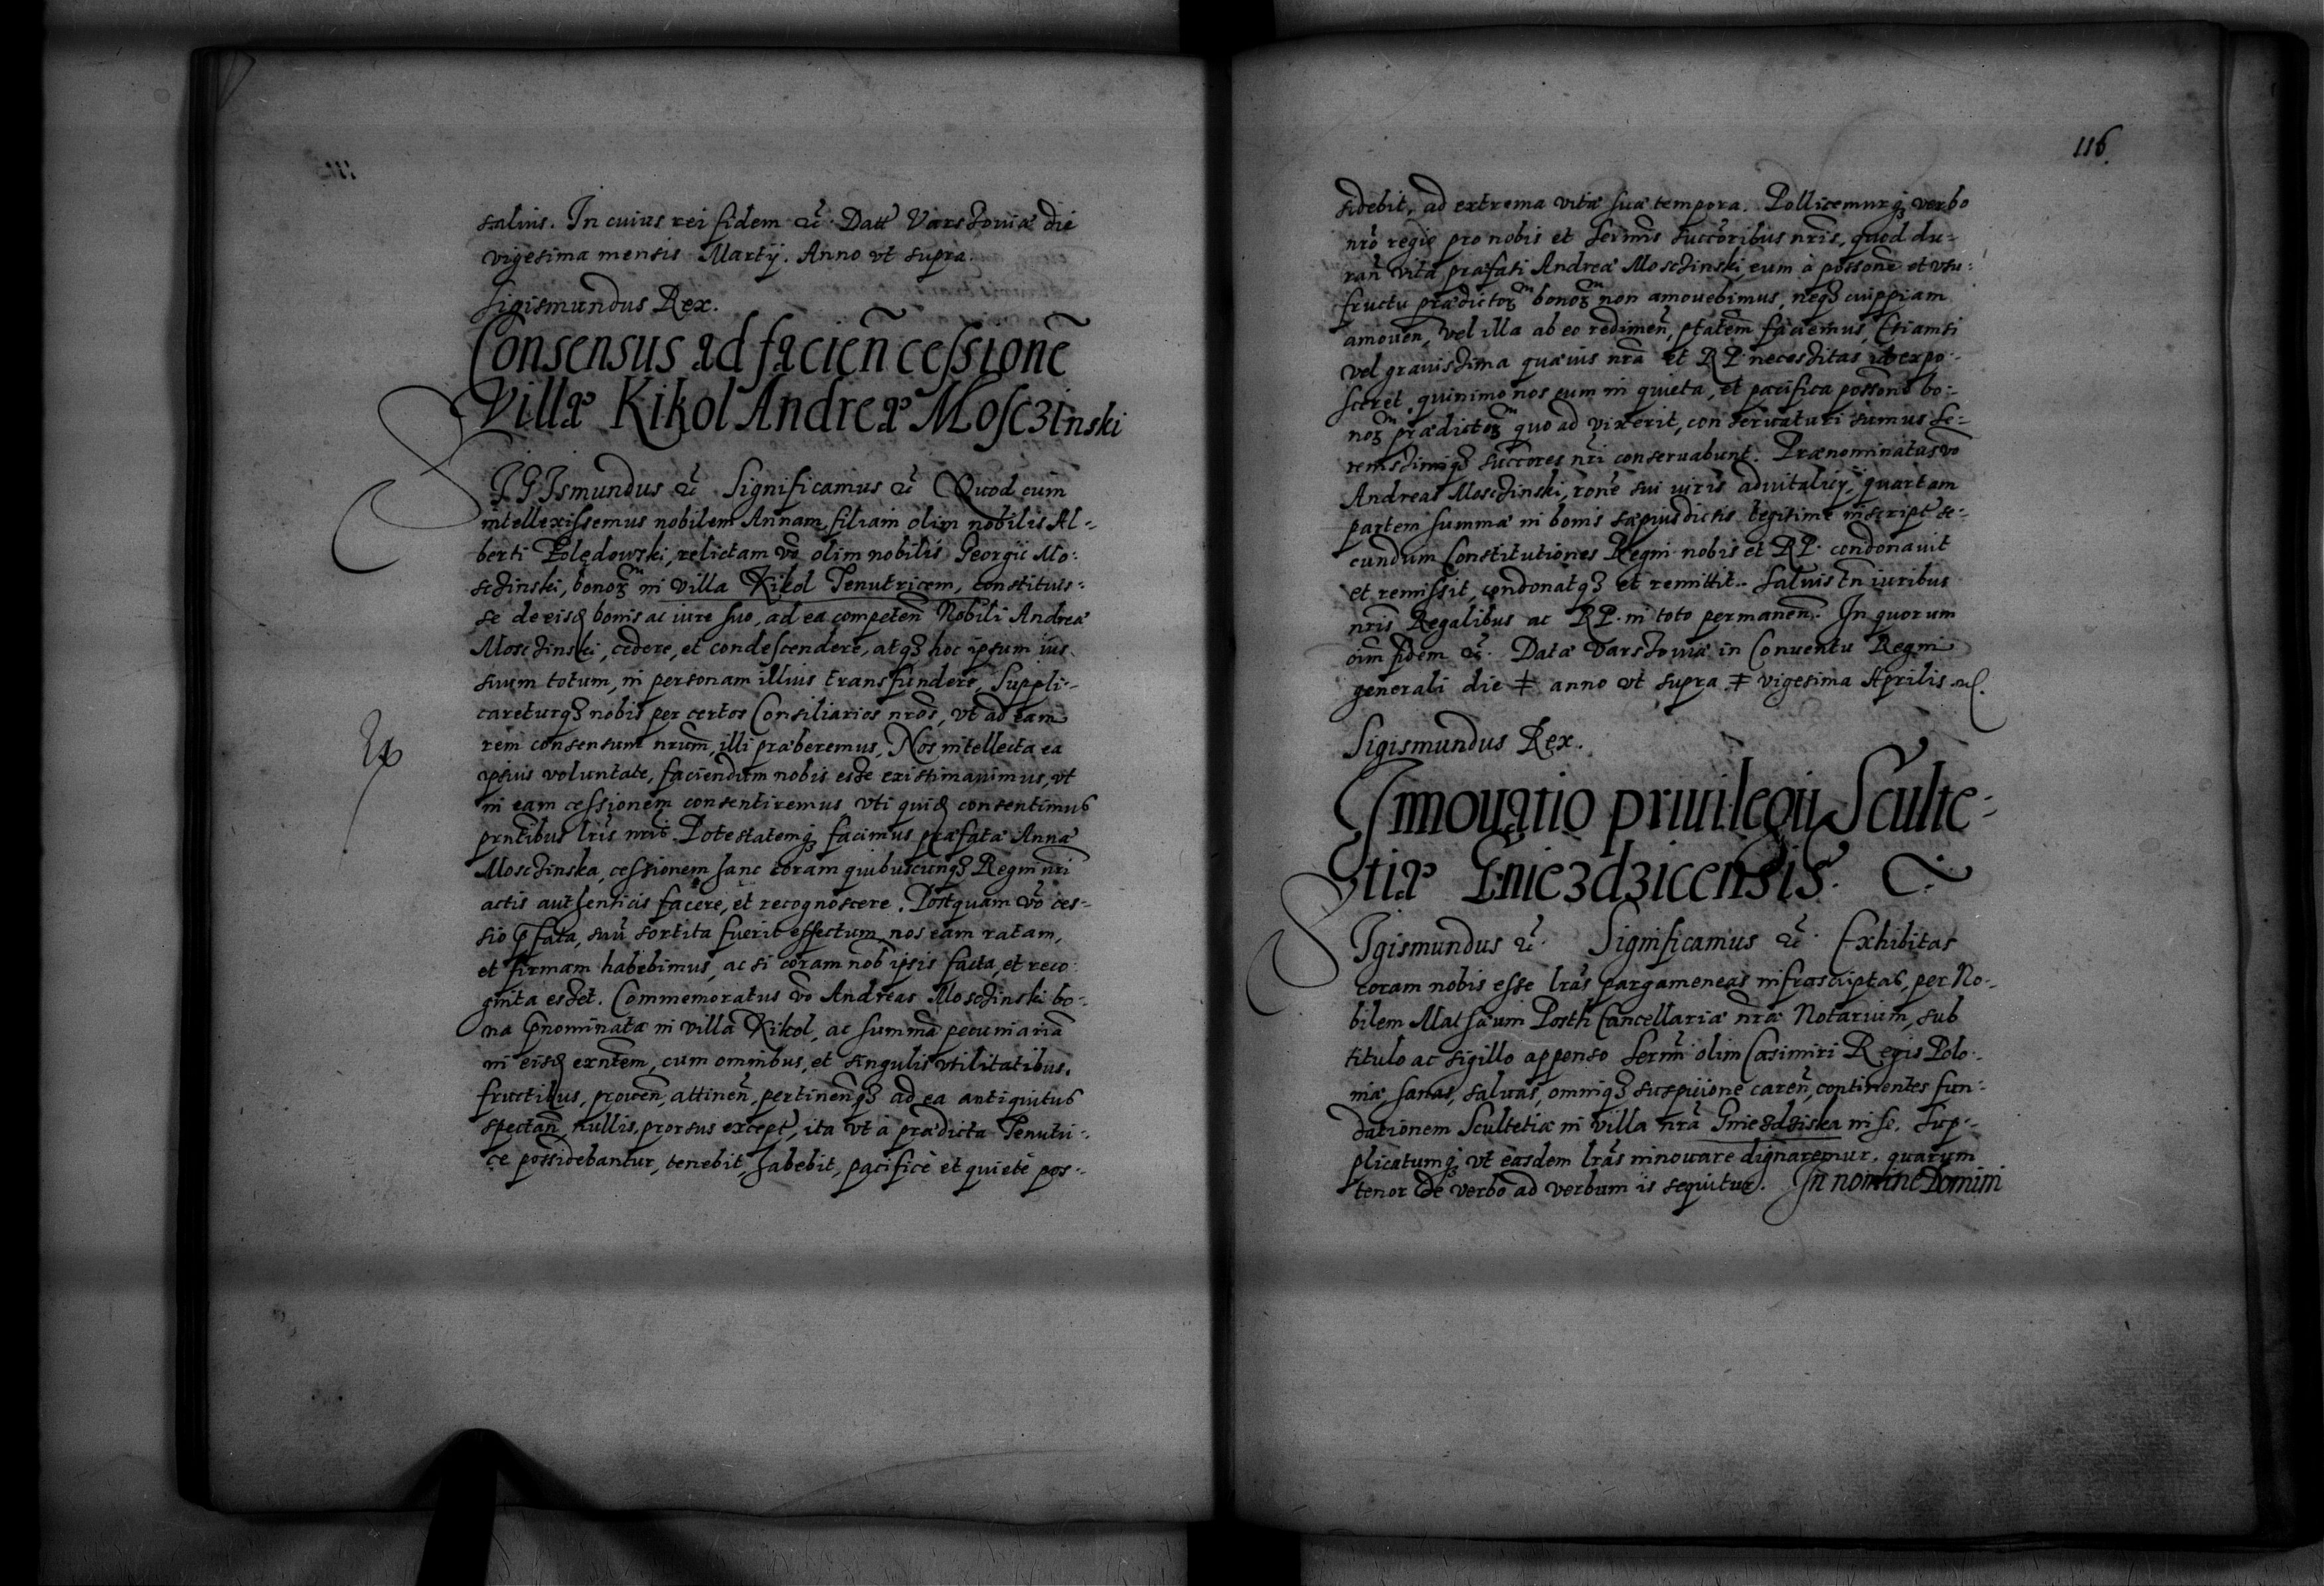 saluis. In cuius rei fidem &c̃. Datt̃ Varssouiæ die
vigesima mensis Martij. Anno vt supra.
Sigismundus Rex.
Consensus ad facien̄ cessionē
Villæ Kikol Andreæ Mosczinski
SIGIsmundus &c̃ Significamus &c̃ Quod cum
intellexissemus nobilem Annam, filiam olim nobilis Al-
berti Polędowski, relictam vō olim nobilis Georgii Mo-
sczinski, bonoꝝ in villa Kikol Tenutricem, constituis-
se de eisꝺ bonis ac iure suo, ad ea competen̄ Nobili Andreæ
Mosczinski, cedere, et condescendere, atqꝫ hoc ipsum ius
suum totum, in personam illius transfundere, Suppli-
careturqꝫ nobis per certos Consiliarios nrōs, vt ad eam
rem consensum nrūm, illi præberemus, Nos intellecta ea
ipsius voluntate, faciendum nobis esse existimauimus, vt
in eam cessionem consentiremus vti quiꝺ consentimus
prn̄tibus lrīs nrīs. Potestatemqꝫ facimus præfatæ Annæ
Mosczinska, cessionem hanc coram quibuscunqꝫ Regni nrī
actis authenticis facere, et recognoscere. Postquam vō ces-
sio p̄fata, suū sortita fuerit effectum, nos eam ratam,
et firmam habebimus, ac si coram nob̄ ipsis facta, et reco-
gnita esset. Commemoratus vō Andreas Mosczinski bo-
na p̄nominata in villa Kikol, ac summā pecuniariā
in eisꝺ exn̄tem, cum omnibus, et singulis vtilitatibus,
fructibus, prouen̄, attinen̄, pertinen̄qꝫ ad ea antiquitus
spectan̄, nullis, prorsus except̄, ita vt a prædicta Tenutri-
ce possidebantur, tenebit, habebit, pacificè et quietè pos-
116
sidebit, ad extrema vitæ suæ tempora. Pollicemurqꝫ verbo
nrō regio pro nobis et Sermīs succōribus nrīs, quod du-
ran̄ vita præfati Andreæ Mosczinski, eum à possonē et vsu-
fructu prædictoꝝ bonoꝝ non amouebimus, neqꝫ cuippiam
amouen̄, vel illa ab eo redimen̄, ptātem faciemus, Etiamsi
vel grauissima quæuis nrā et RP. necessitas id expo-
sceret, quinimo nos eum in quieta, et pacifica possonē bo-
noꝝ prædictoꝝ quo ad vixerit, conseruaturi sumus Se-
renissimiqꝫ succores nrī conseruabunt. Prænominatus vō
Andreas Mosczinski, rōne sui iuris aduitalicij, quartam
partem summæ in bonis sæpiusdictis legitime inscript̄ se-
cundum Constitutiones Regni nobis et RP. condonauit
et remissit, condonatqꝫ et remittit. Saluis tn̄ iuribus
nrīs Regalibus ac RP. in toto permanen̄. In quorum
oīm fidem &c̃. Datæ Varssouiæ in Conuentu Regni
generali die ǂ anno vt supra. ǂ vigesima Aprilis
Sigismundus Rex.
Innouatio priuilegii Sculte-
tiæ Gniezdzicensis.
SIgismundus &c̃. Significamus &c̃. Exhibitas
coram nobis esse lrās pargameneas infrascriptas, per No-
bilem Mathæum Porth Cancellariæ nrǣ Notarium, sub
titulo ac sigillo appenso Sermī olim Casimiri Regis Polo-
niæ, sanas, saluas, omniqꝫ suspicione caren̄, continentes fun-
dationem Scultetiæ in villa nrā Gniezdziska in se. Sup-
plicatumqꝫ vt easdem lrās innouare dignaremur, quarum
tenor de verbo ad verbum is sequitur. In nomine Domini